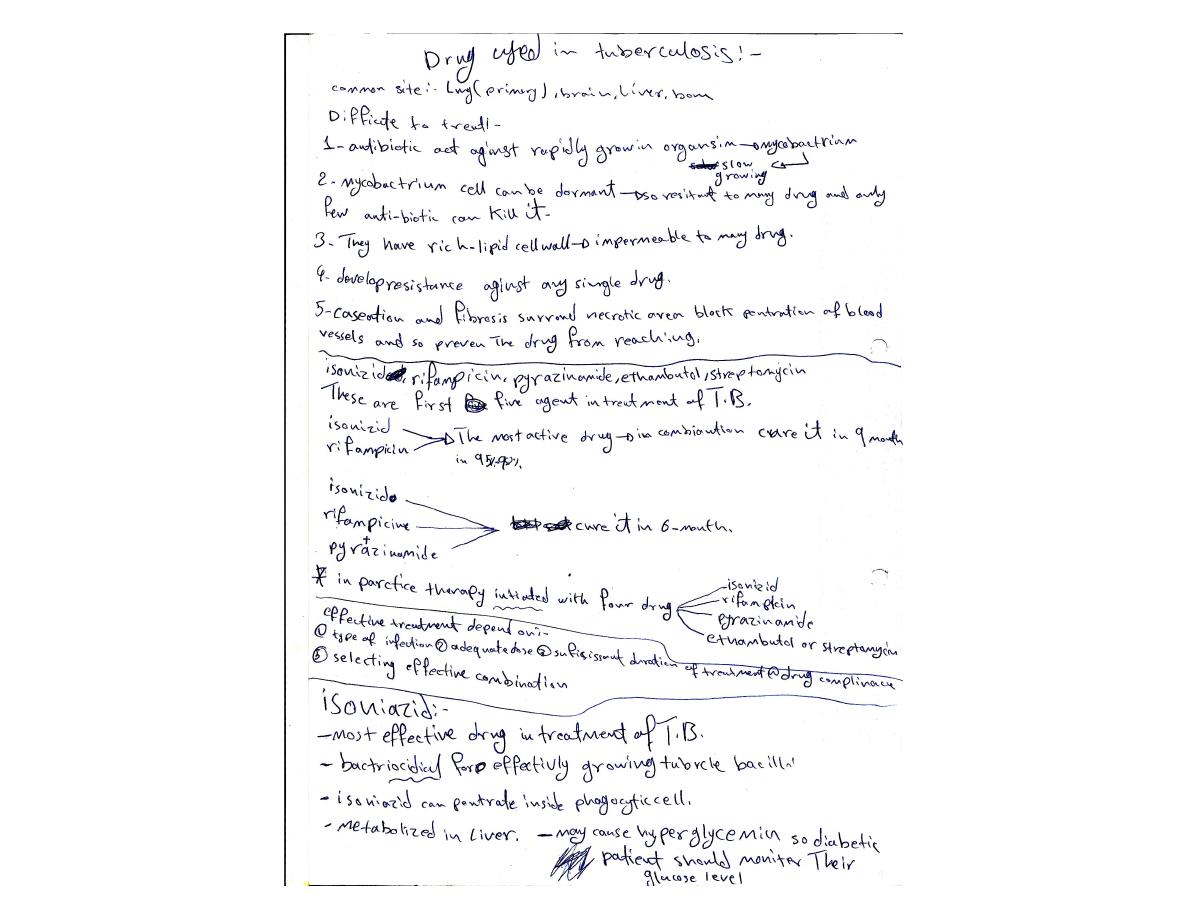 Drug used in tuberculosis:-
common site:- Lung(primary), brain, liver, bone
Difficute to treat:-
1- antibiotic act against rapidly growin organsim → mycobactrium
slow
growing
2- mycobactrium cell can be dormant → so resitant to many drug and only
few anti-biotic can kill it-
3- They have rich-lipid cell wall → impermeable to many drug.
4- develop resistance aginst any single drug.
5- caseation and fibrosis surrond necrotic area block pentration of blood
vessels and so preven The drug from reaching.
isonizid, rifampicin, pyrazinamide, ethambutol, streptomycin
These are first five agent in treatment of T.B.
isonizid
rifampicin
→ The most active drug → in combiantion cure it in 9 month
in 95%-90%.
isonizid
rifampicine
+
pyrazinamide
cure it in 6-month.
* in parctice therapy intiated with four drug
isonizid
rifampicin
pyrazinamide
ethambutol or streptomycin
effective treatment depend on:-
① type of infection ② adequate dose ③ sufisissant duration of treatment ④ drug complinace
⑤ selecting effective combination
isoniazid:-
- most effective drug in treatment of T.B.
- bactriocidial for effectivly growing tubrcle bacilli
- isoniazid can pentrate inside phagocytic cell.
- metabolized in Liver. - may cause hyperglycemia so diabetic
patient should moniter Their
glucose level